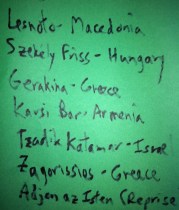 Lesnoto - Macedonia
Szekely Friss - Hungary
Gerakina - Greece
Karsi Bar - Armenia
Tzadik Katamar - Israel
Zagorissios - Greece
Adjon az Isten (Reprise